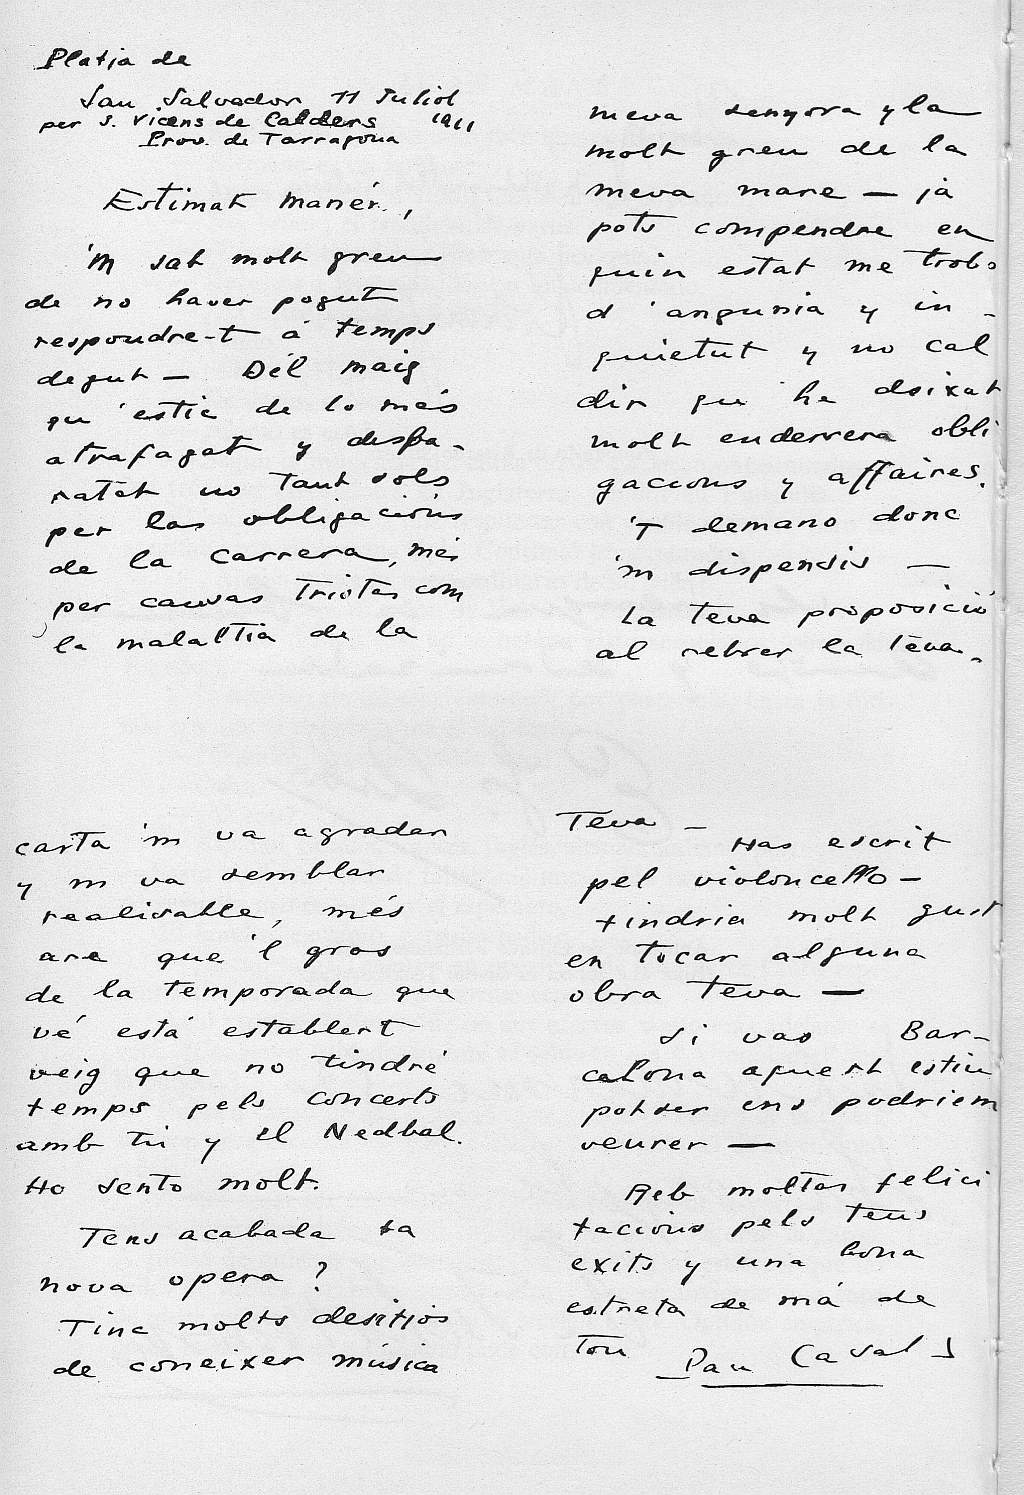 Platja de
San Salvador 11 Juliol
per S. Vicens de Calders 1911
Prov. de Tarragona
Estimat Manén,
'M sab molt greu
de no haver pogut
respondre-t á temps
degut — Dél maig
qu'estic de lo més
atrafagat y despa-
ratat no tant sols
per las obligacións
de la carrera, més
per causas tristas com
la malaltia de la
meva senyora y la
molt greu de la
meva mare — já
pots compendre en
quin estat me trobo
d'angunia y in-
quietut y no cal
dir qu'he deixat
molt enderrera obli
gacions y affaires.
'T demano donc
'm dispensis —
La teva proposició
al rebrer la teva
carta 'm va agradar
y m va semblar
realisable, més
ara que 'l gros
de la temporada que
vé está establert
veig que no tindré
temps pels concerts
amb tú y el Nedbal.
Ho sento molt.
Tens acabada ta
nova opera?
Tinc molts desitjos
de coneixer música
Teva —
Has escrit
pel violoncello —
tindria molt gust
en tocar alguna
obra teva —
Si vas Bar-
celona aquest estiu
potser ens podriem
veurer —
Reb moltas felici
tacions pels teus
exits y una bona
estreta de má de
ton Pau Casals